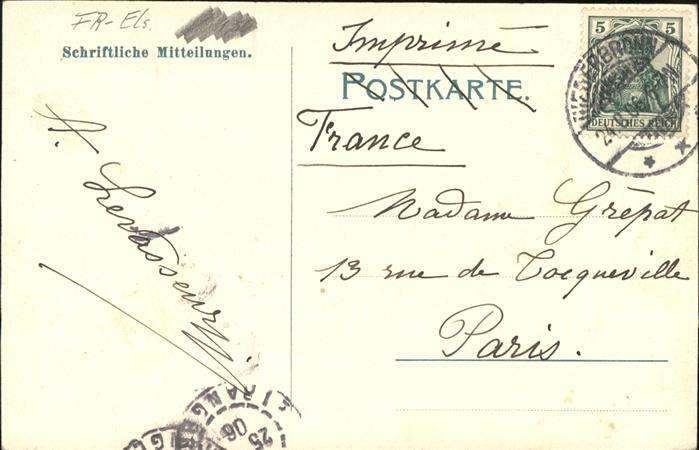 FR-Els.
Schriftliche Mitteilungen.
Imprimé
POSTKARTE.
France
5 5
DEUTSCHES REICH
NIEDERBRONN
A. Levasseur
Madame Grépat
13 rue de Tocqueville
Paris.
ETRANGER
25
06